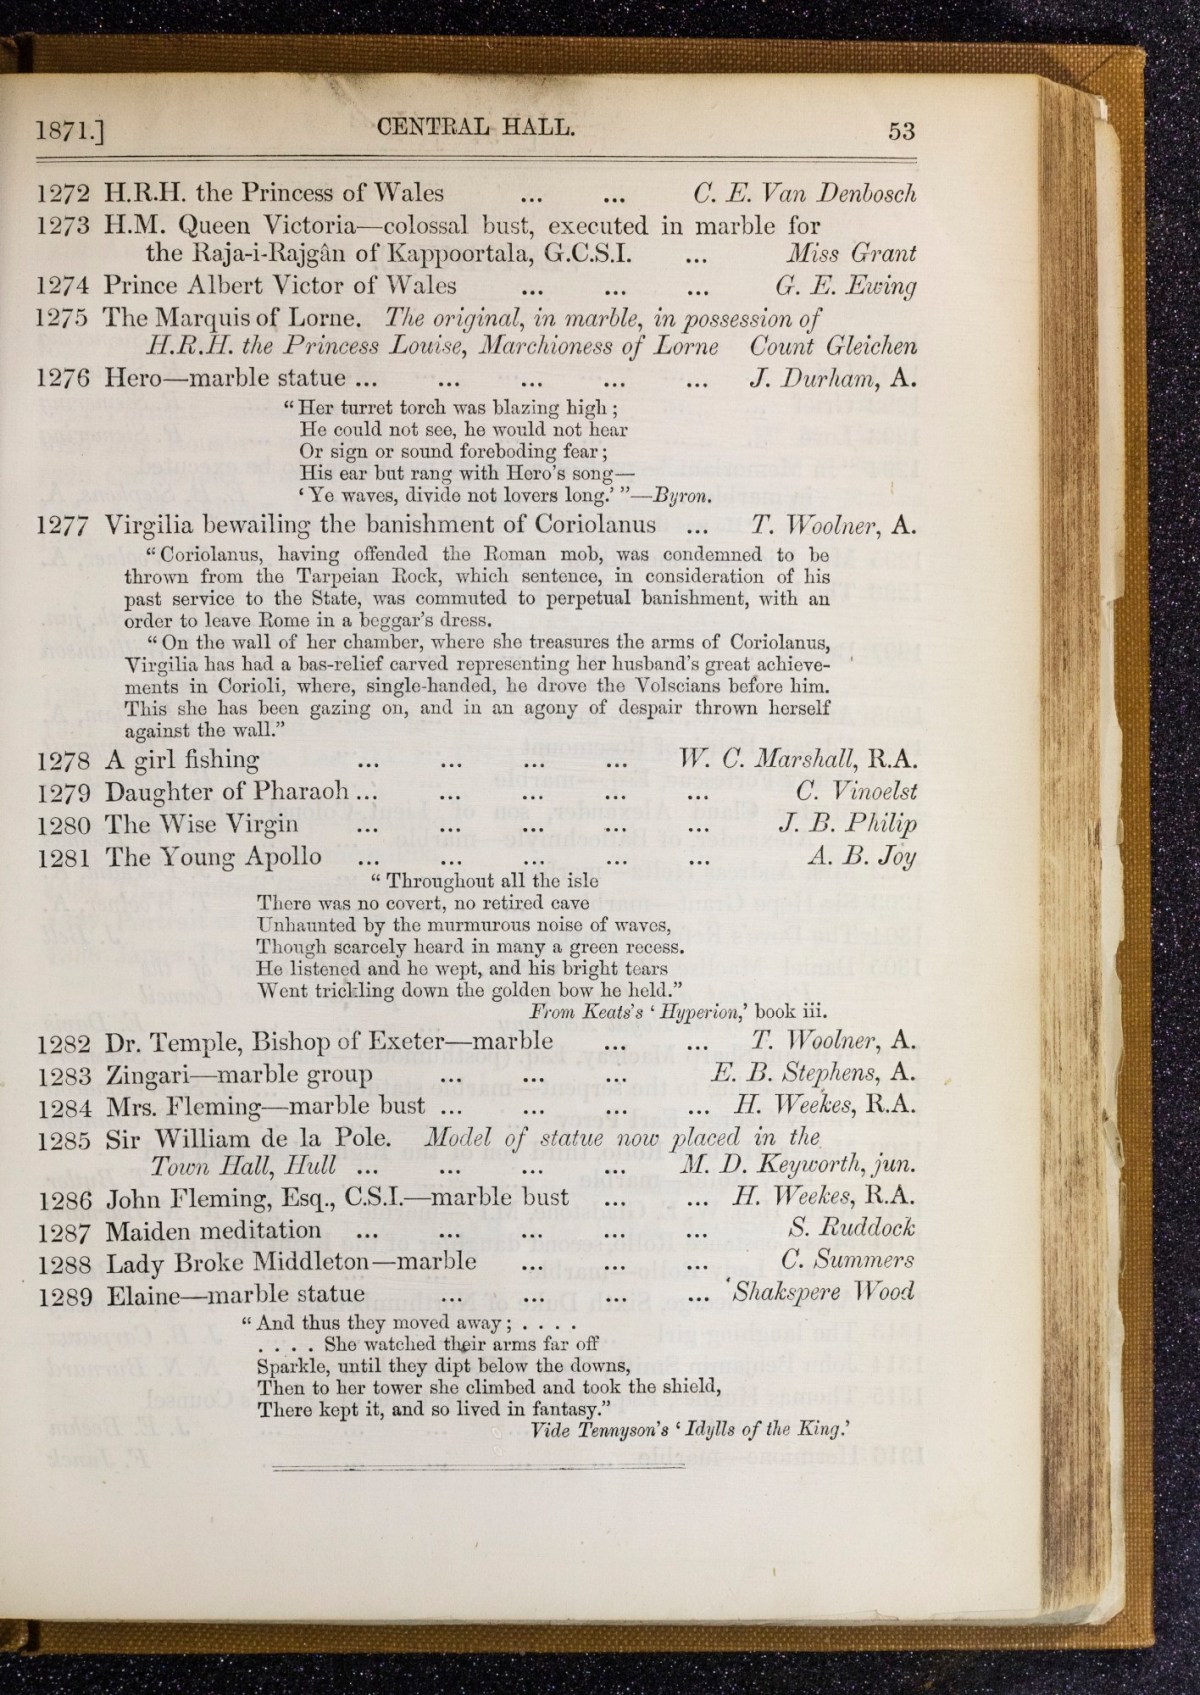 1871.] CENTRAL HALL. 53
1272 H.R.H. the Princess of Wales ... ... C. E. Van Denbosch
1273 H.M. Queen Victoria—colossal bust, executed in marble for
the Raja-i-Rajgân of Kappoortala, G.C.S.I. ... Miss Grant
1274 Prince Albert Victor of Wales ... ... ... G. E. Ewing
1275 The Marquis of Lorne. The original, in marble, in possession of
H.R.H. the Princess Louise, Marchioness of Lorne Count Gleichen
1276 Hero—marble statue ... ... ... ... ... J. Durham, A.
“Her turret torch was blazing high;
He could not see, he would not hear
Or sign or sound foreboding fear;
His ear but rang with Hero's song—
‘Ye waves, divide not lovers long.’ ”—Byron.
1277 Virgilia bewailing the banishment of Coriolanus ... T. Woolner, A.
“Coriolanus, having offended the Roman mob, was condemned to be
thrown from the Tarpeian Rock, which sentence, in consideration of his
past service to the State, was commuted to perpetual banishment, with an
order to leave Rome in a beggar's dress.
“On the wall of her chamber, where she treasures the arms of Coriolanus,
Virgilia has had a bas-relief carved representing her husband's great achieve-
ments in Corioli, where, single-handed, he drove the Volscians before him.
This she has been gazing on, and in an agony of despair thrown herself
against the wall.”
1278 A girl fishing ... ... ... ... W. C. Marshall, R.A.
1279 Daughter of Pharaoh ... ... ... ... ... C. Vinoelst
1280 The Wise Virgin ... ... ... ... ... J. B. Philip
1281 The Young Apollo ... ... ... ... ... A. B. Joy
“Throughout all the isle
There was no covert, no retired cave
Unhaunted by the murmurous noise of waves,
Though scarcely heard in many a green recess.
He listened and he wept, and his bright tears
Went trickling down the golden bow he held.”
From Keats's ‘Hyperion,’ book iii.
1282 Dr. Temple, Bishop of Exeter—marble ... ... T. Woolner, A.
1283 Zingari—marble group ... ... ... E. B. Stephens, A.
1284 Mrs. Fleming—marble bust ... ... ... ... H. Weekes, R.A.
1285 Sir William de la Pole. Model of statue now placed in the
Town Hall, Hull ... ... ... ... M. D. Keyworth, jun.
1286 John Fleming, Esq., C.S.I.—marble bust ... ... H. Weekes, R.A.
1287 Maiden meditation ... ... ... ... ... S. Ruddock
1288 Lady Broke Middleton—marble ... ... ... C. Summers
1289 Elaine—marble statue ... ... ... ... Shakspere Wood
“And thus they moved away; . . . .
. . . . She watched their arms far off
Sparkle, until they dipt below the downs,
Then to her tower she climbed and took the shield,
There kept it, and so lived in fantasy.”
Vide Tennyson's ‘Idylls of the King.’